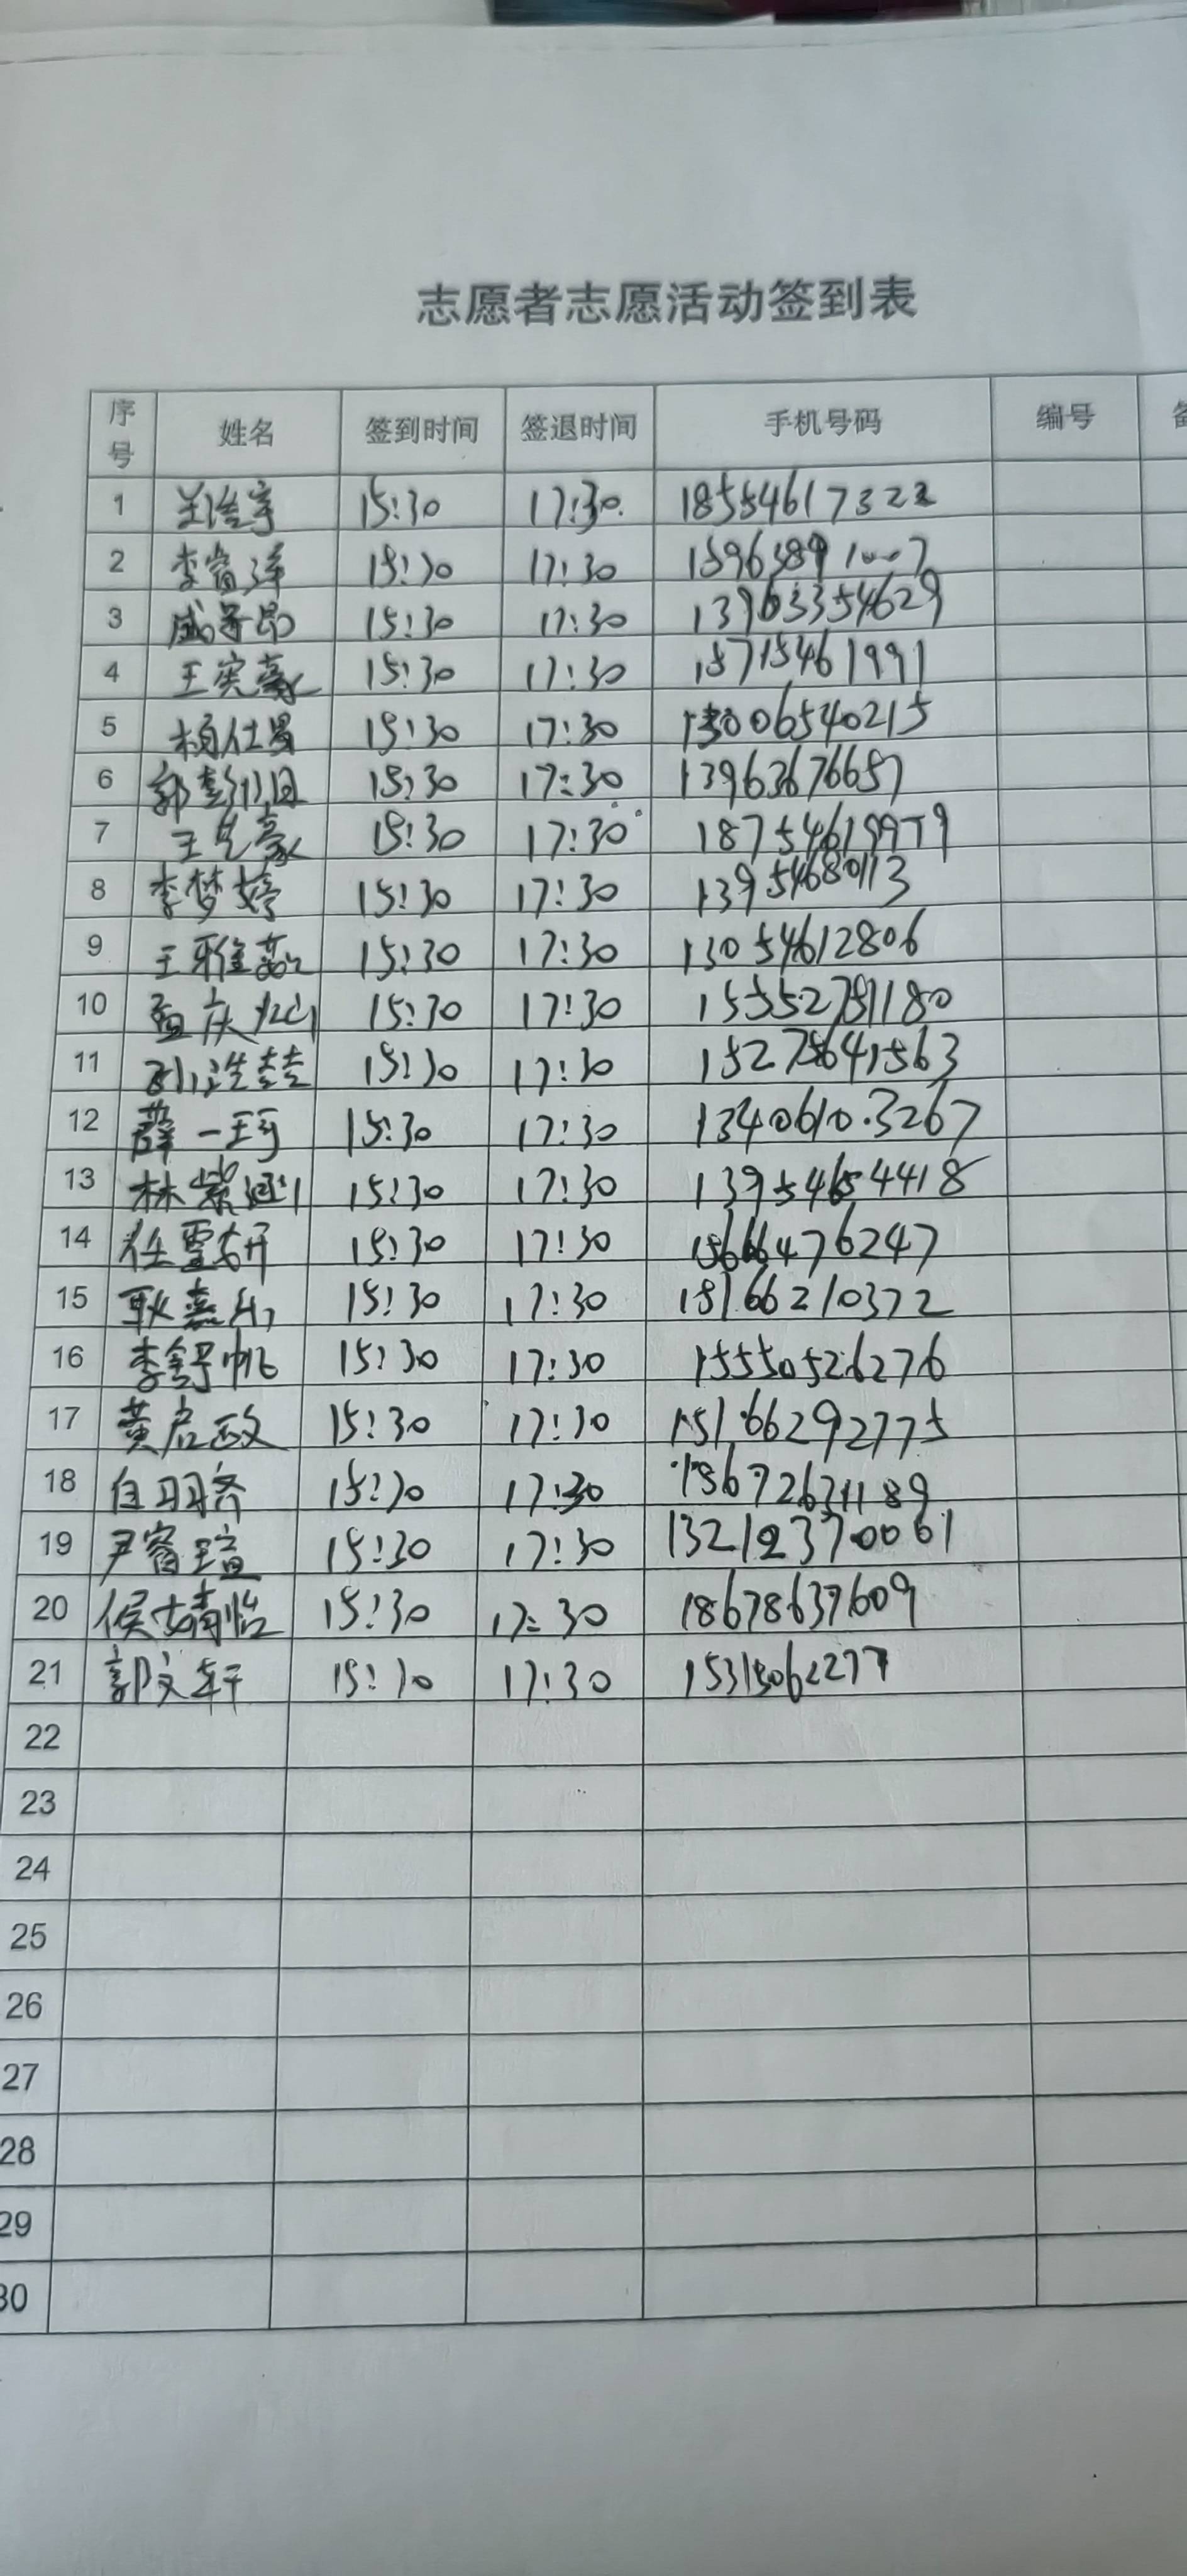 志愿者志愿活动签到表
序号 姓名 签到时间 签退时间 手机号码 编号
1 15:30 17:30. 18554617322
2 李睿泽 15:30 17:30 15963891007
3 15:30 17:30 13963354629
4 王奕豪 15:30 17:30 15715461991
5 柏仕昌 15:30 17:30 13006540215
6 15:30 17:30 13963676657
7 王艺豪 15:30 17:30 18754619979
8 李梦婷 15:30 17:30 13954680113
9 王雅茹 15:30 17:30 13054612806
10 孟庆灿 15:30 17:30 15552781180
11 15:30 17:30 15278641563
12 薛一珂 15:30 17:30 13406103267
13 林紫涵 15:30 17:30 13954654418
14 任雪妍 15:30 17:30 15666476247
15 15:30 17:30 15166210372
16 李舒帆 15:30 17:30 15550526276
17 黄启政 15:30 17:30 15166292775
18 白羽齐 15:30 17:30 15672631189
19 尹睿瑄 15:30 17:30
20 侯婧怡 15:30 17:30 18678637609
21 郭文轩 15:30 17:30 15315062277
22
23
24
25
26
27
28
29
30